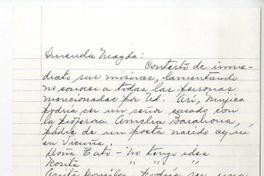 Magda:
Contesto de inme-
diato sus misivas, lamentando
no conocer a todas las personas
mencionadas por Ud. Así, Mujica
podría ser un señor casado con
la profesora Amelia Barahona,
padre de un poeta nacido aquí
en Vicuña.
Doña Tato - No tengo idea
Rosita " " "
podría ser una